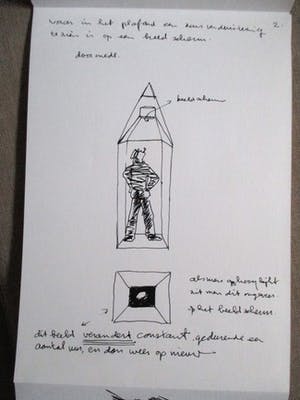 waar in het plafond een zonsverduistering 2.
te zien is op een beeld scherm.
beeldscherm
als men omhoog ligt
ziet men dit ongeveer
op het beeldscherm.
dit beeld verandert constant gedurende een
aantal uur, en dan weer op nieuw